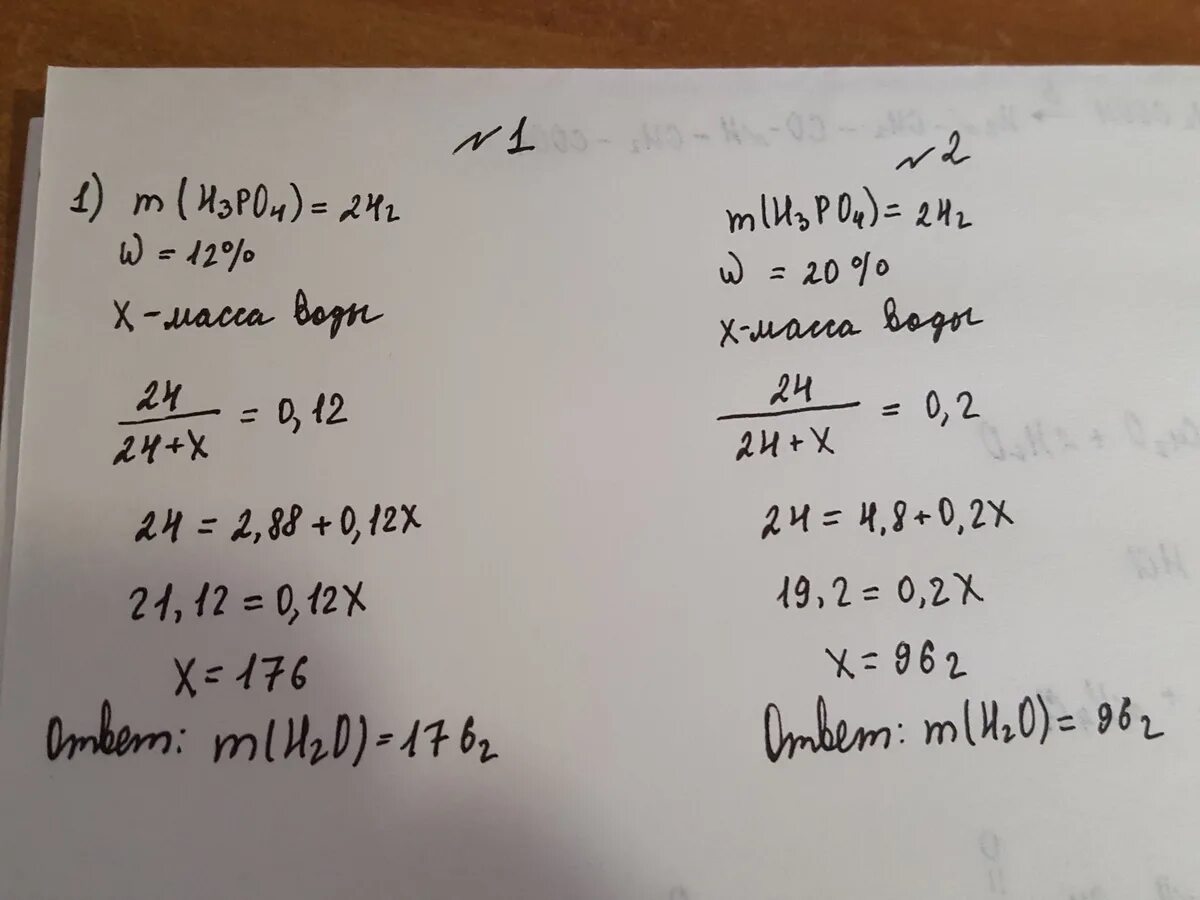 №1
1) m(H₃PO₄) = 24г
W = 12%
X - масса воды
24
24+X
= 0,12
24 = 2,88 + 0,12X
21,12 = 0,12X
X = 176
Ответ: m(H₂O) = 176г
№2
m(H₃PO₄) = 24г
W = 20%
X - масса воды
24
24+X
= 0,2
24 = 4,8 + 0,2X
19,2 = 0,2X
X = 96г
Ответ: m(H₂O) = 96г